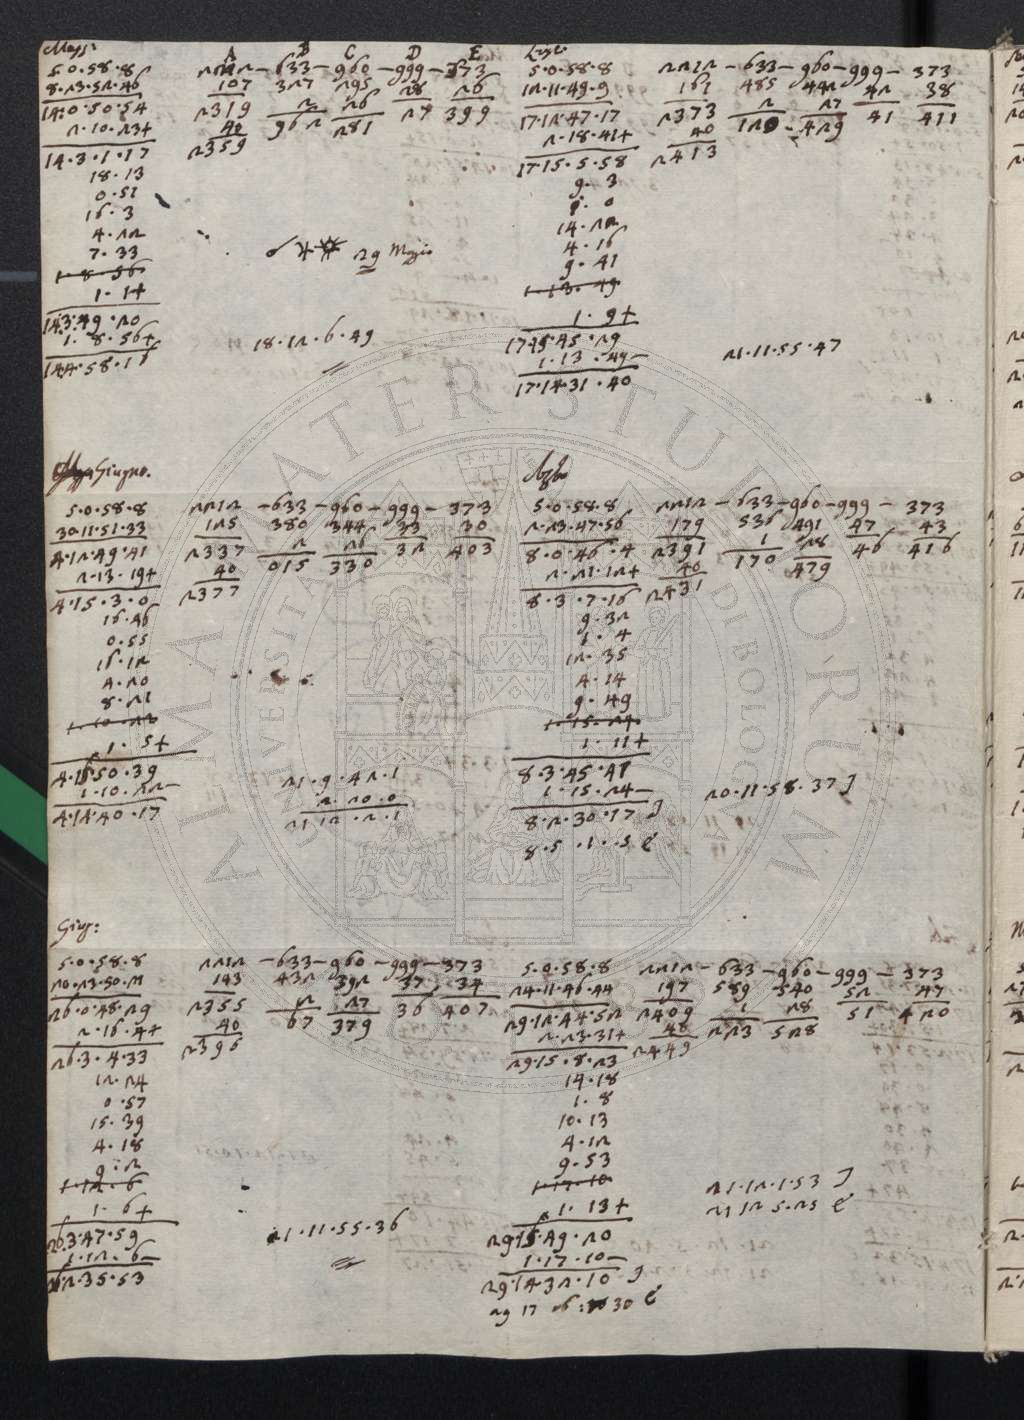 Magg:
A B C D E
5.0.58.8 2212 - 633 - 960 - 999 - 373
8.23.52.46 107 327 295 28 26
14.0.50.54 2319 2 26 27 399
2.10.23+ 40 962 281
14.3.1.17 2359
18.13
0.51
16.3
4.22
7.33
1.8.56
1.1+
14.3.49.20
1.8.56+
14.4.58.16
29 Maggio
18.12.6.49

Lugl:
5.0.58.8 2212 - 633 - 960 - 999 - 373
12.11.49.9 161 485 442 42 38
17.12.47.17 2373 2 27 41 411
2.18.41+ 40 120 429
17.15.5.58 2413
9.3
9.0
14.22
4.16
9.41
1.13.49
1.9+
17.15.45.29
1.13.49-
17.14.31.40
21.11.55.47

Giugno.
5.0.58.8 2212 - 633 - 960 - 999 - 373
30.11.51.33 125 380 344 33 30
4.12.49.41 2337 2 26 32 403
2.13.19+ 40 015 330
4.15.3.0 2377
16.46
0.55
16.12
4.20
8.21
1.5+
4.15.50.39
1.10.22-
4.14.40.17
21.9.42.1
2.20.0
21.12.2.1

5.0.58.8 2212 - 633 - 960 - 999 - 373
2.23.47.56 179 536 491 47 43
8.0.46.4 2391 1 28 46 416
2.21.12+ 40 170 479
8.3.7.16 2431
9.32
1.4
12.35
4.14
9.49
1.15.24
1.11+
8.3.45.41
1.15.24-
8.2.30.17
8.5.1.5
20.11.58.37

Giug:
5.0.58.8 2212 - 633 - 960 - 999 - 373
20.23.50.21 143 432 392 37 34
26.0.48.29 2355 2 27 36 407
2.16.4+ 40 67 379
26.3.4.33 2396
12.24
0.57
15.39
4.18
9.2
1.12.6
1.6+
26.3.47.59
1.12.6-
26.2.35.53
21.11.55.36

5.0.58.8 2212 - 633 - 960 - 999 - 373
24.11.46.44 197 589 540 52 47
29.12.44.52 2409 1 28 51 420
2.23.31+ 40 223 528
29.15.8.23 2449
14.18
1.8
10.13
4.12
9.53
1.17.10
1.13+
29.15.49.20
1.17.10-
29.14.32.10
29 17 6:30
21.12.1.53
21 12 5.25